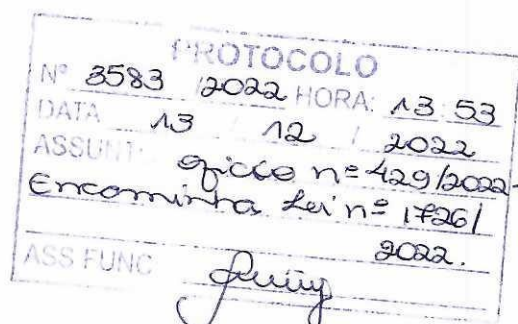 PROTOCOLO
Nº 3583 /2022 HORA: 13:53
DATA 13 / 12 / 2022
ASSUNT: Ofício nº 429/2022-
Encaminha Lei nº 1726/
2022.
ASS FUNC